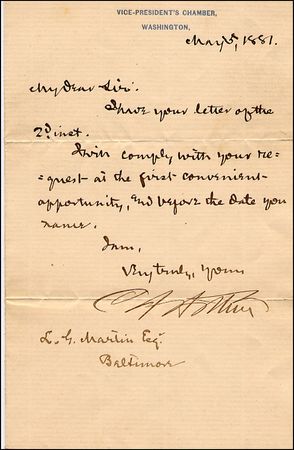 VICE-PRESIDENT'S CHAMBER,
WASHINGTON,
May 5, 1881.
My Dear Sir:
I have your letter of the
2d inst.
I will comply with your re=
=quest at the first convenient
opportunity, and before the date you
name.
I am,
Very truly, yours
C A Arthur
L. G. Martin Esq.
Baltimore